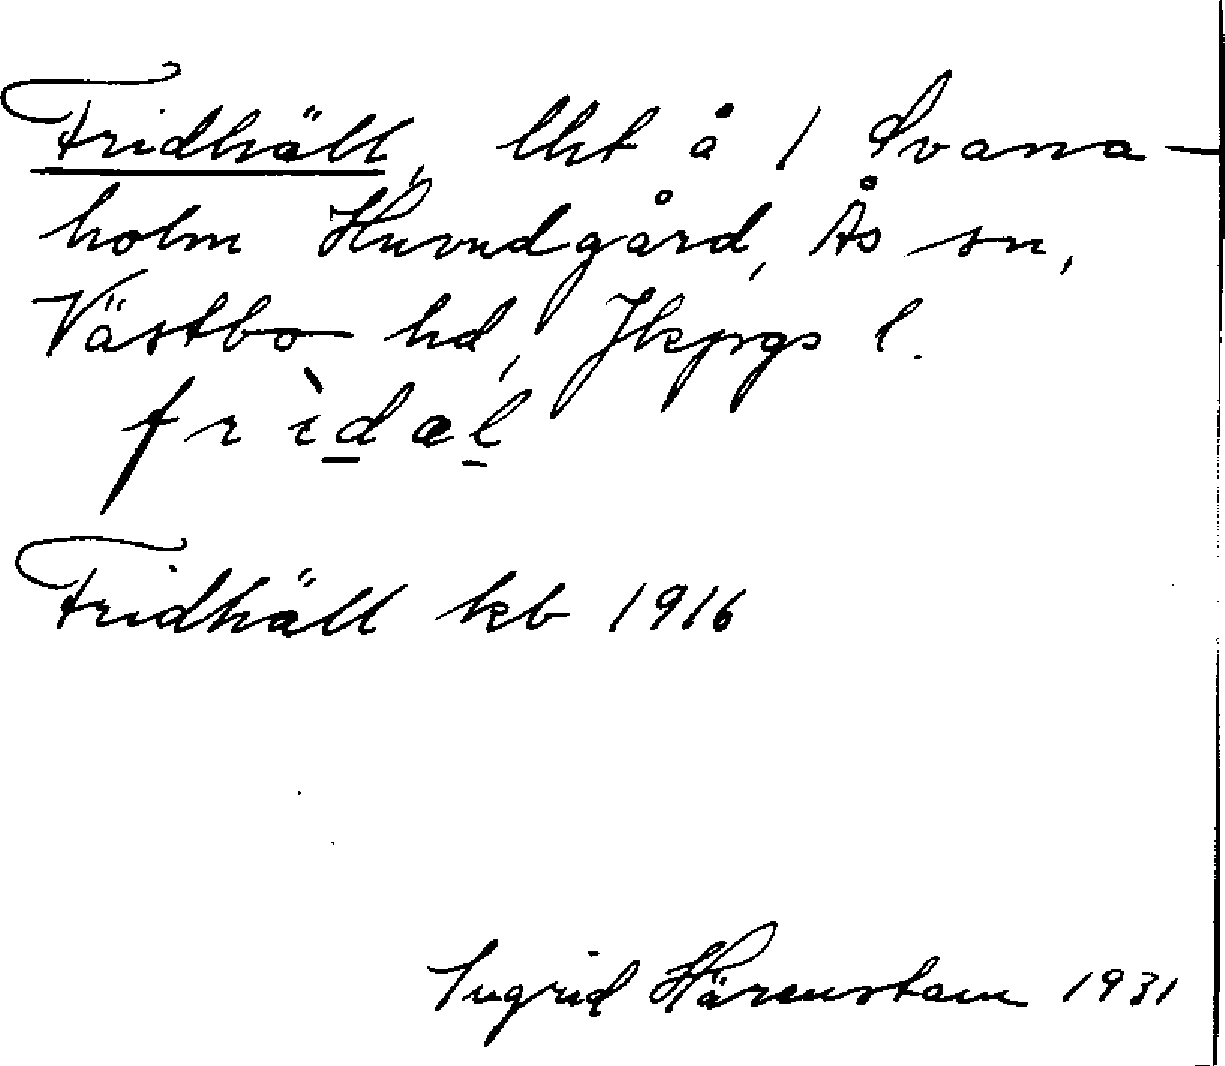 Fridhäll, lht å 1 Svana-
holm Huvudgård, Ås sn,
Västbo hd, Jkpgs l.
fr ì d æ l
Fridhäll kb 1916
Ingrid Härenstam 1931